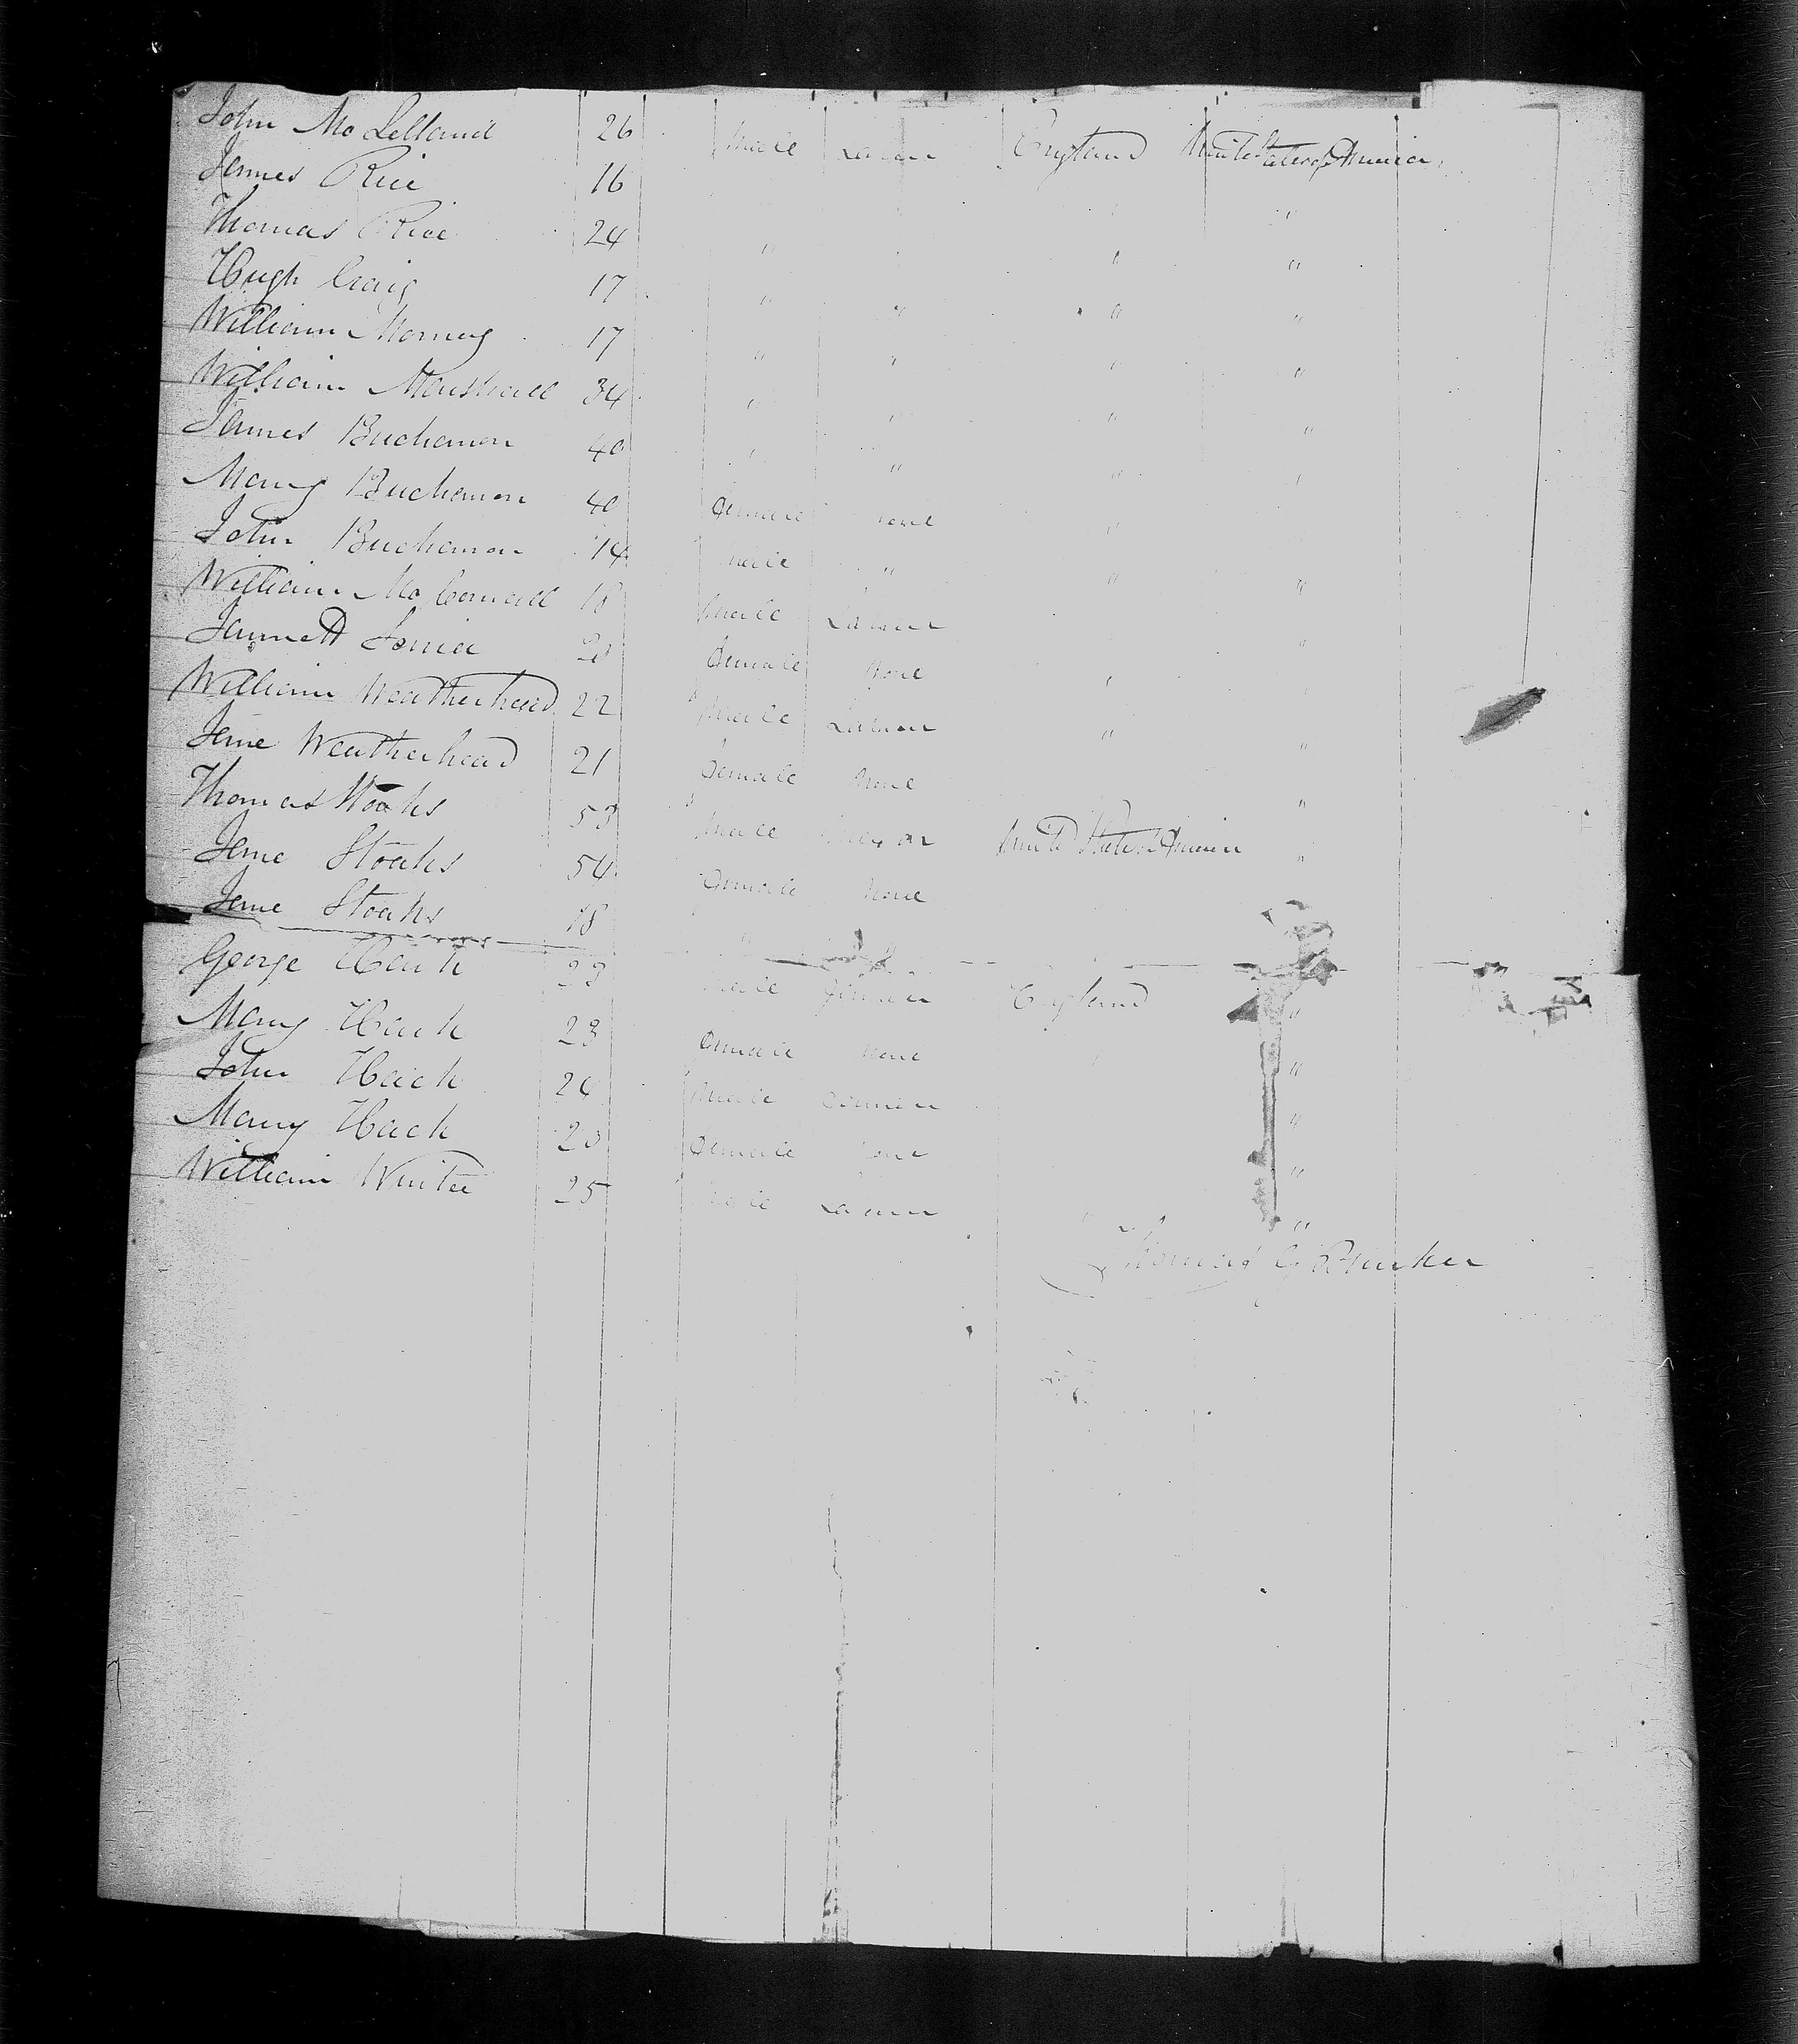 John McLelland 26 Male Labour England United States of America
James Rice 16 " " "
Thomas Rice 24 " " " "
Hugh Craig 17 " " " "
William Morney 17 " " " "
William Marshall 34 " " " "
James Buchanan 40 " " " "
Mary Buchanan 40 Female None "
John Buchanan 14 Male " " "
William McConnall 18 Male Labour "
Jannett 20 Female None " "
William Weatherhead 22 Male Labour " "
Jane Weatherhead 21 Female None "
Thomas Stoaks 53 Male United States of America "
Jane Stoaks 54 Female None
Jane Stoaks 18 " "
George Hack 23 Male Farmer England "
Mary Hack 23 Female None " "
John Hack 24 Male Farmer "
Mary Hack 20 Female None "
William Winter 25 Male Labour "
Thomas G Bunker